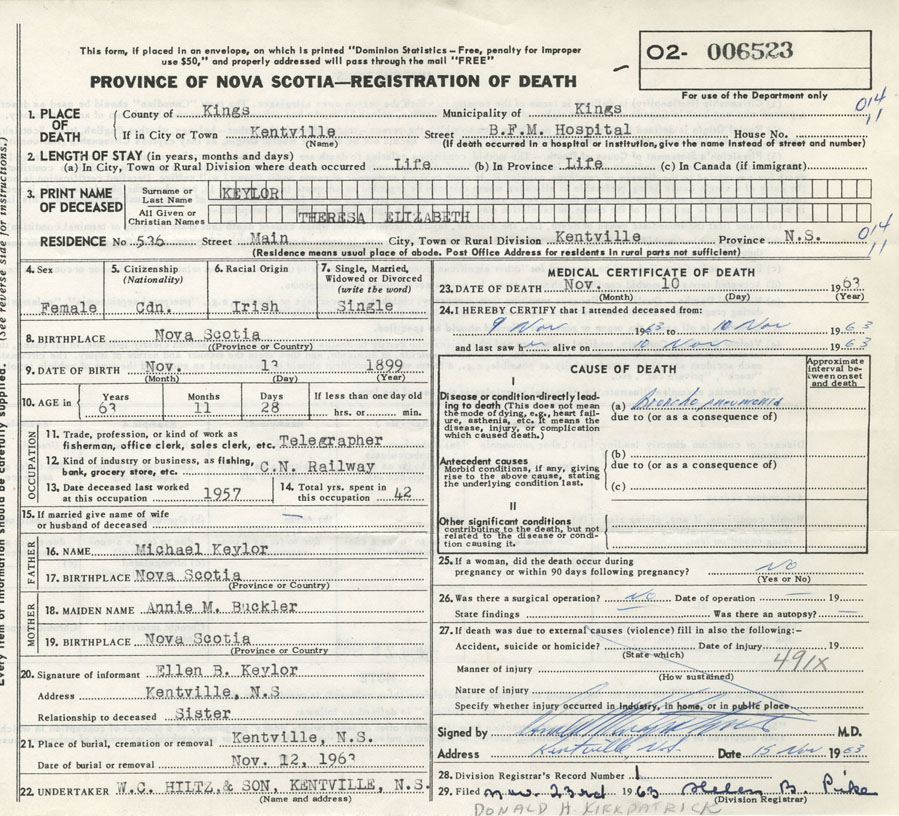 This form, if placed in an envelope, on which is printed "Dominion Statistics – Free, penalty for improper
use $50," and properly addressed will pass through the mail "FREE"
O2- 006523
PROVINCE OF NOVA SCOTIA—REGISTRATION OF DEATH
For use of the Department only
1. PLACE OF DEATH
County of Kings Municipality of Kings
014
11
If in City or Town Kentville Street B.F.M. Hospital House No.
(Name) (If death occurred in a hospital or institution, give the name instead of street and number)
2. LENGTH OF STAY (in years, months and days)
(a) In City, Town or Rural Division where death occurred Life (b) In Province Life (c) In Canada (if immigrant)
3. PRINT NAME OF DECEASED
Surname or Last Name KEYLOR
All Given or Christian Names THERESA ELIZABETH
RESIDENCE No. 536 Street Main City, Town or Rural Division Kentville Province N.S.
014
11
(Residence means usual place of abode. Post Office Address for residents in rural parts not sufficient)
4. Sex Female
5. Citizenship (Nationality) Cdn.
6. Racial Origin Irish
7. Single, Married, Widowed or Divorced (write the word) Single
8. BIRTHPLACE Nova Scotia
((Province or Country)
9. DATE OF BIRTH Nov. 13 1899
(Month) (Day) (Year)
10. AGE in Years 63 Months 11 Days 28 If less than one day old hrs. or min.
OCCUPATION
11. Trade, profession, or kind of work as
fisherman, office clerk, sales clerk, etc. Telegrapher
12. Kind of industry or business, as fishing,
bank, grocery store, etc. C.N. Railway
13. Date deceased last worked
at this occupation 1957
14. Total yrs. spent in
this occupation 42
15. If married give name of wife
or husband of deceased —
FATHER
16. NAME Michael Keylor
17. BIRTHPLACE Nova Scotia
(Province or Country)
MOTHER
18. MAIDEN NAME Annie M. Buckler
19. BIRTHPLACE Nova Scotia
(Province or Country)
20. Signature of informant Ellen B. Keylor
Address Kentville, N.S
Relationship to deceased Sister
21. Place of burial, cremation or removal Kentville, N.S.
Date of burial or removal Nov. 12, 1963
22. UNDERTAKER W.C. HILTZ & SON, KENTVILLE, N.S.
(Name and address)
MEDICAL CERTIFICATE OF DEATH
23. DATE OF DEATH Nov. 10 1963
(Month) (Day) (Year)
24. I HEREBY CERTIFY that I attended deceased from:
9 Nov 1963 to 10 Nov 1963
and last saw her alive on 10 Nov 1963
CAUSE OF DEATH
Approximate interval between onset and death
I
Disease or condition directly leading to death (This does not mean
the mode of dying, e.g., heart failure, asthenia, etc. It means the
disease, injury, or complication
which caused death.)
(a) Broncho pneumonia
due to (or as a consequence of)
Antecedent causes
Morbid conditions, if any, giving
rise to the above cause, stating
the underlying condition last.
(b)
due to (or as a consequence of)
(c)
II
Other significant conditions
contributing to the death, but not
related to the disease or condition causing it.
25. If a woman, did the death occur during
pregnancy or within 90 days following pregnancy? No
(Yes or No)
26. Was there a surgical operation? No Date of operation — 19
State findings — Was there an autopsy? —
27. If death was due to external causes (violence) fill in also the following:–
Accident, suicide or homicide? Date of injury 19
(State which)
491X
Manner of injury
(How sustained)
Nature of injury
Specify whether injury occurred in industry, in home, or in public place
Signed by M.D.
Address Kentville N.S. Date 15 Nov 1963
28. Division Registrar's Record Number 1
29. Filed Nov. 23rd 1963 Helen B. Pike
(Division Registrar)
DONALD H. KIRKPATRICK
Every item of information should be carefully supplied. (See reverse side for instructions.)